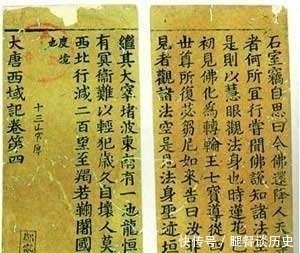 石室竊自思曰今佛還降人天
者何所宜行昔聞佛說知諸法
是則以慧眼觀法身也時蓮花
初見佛化為轉輪王七寶導從四
世尊所復苾芻尼如來告曰汝
見者觀諸法空是見法身聖迹垣
繼其大窣堵波東南有一池龍恒
有冥衛難以輕犯歲久自壞人莫
西北行減二百里至羯若鞠闍國
度境也
大唐西域記卷第四
快传号 / 腿餐谈历史